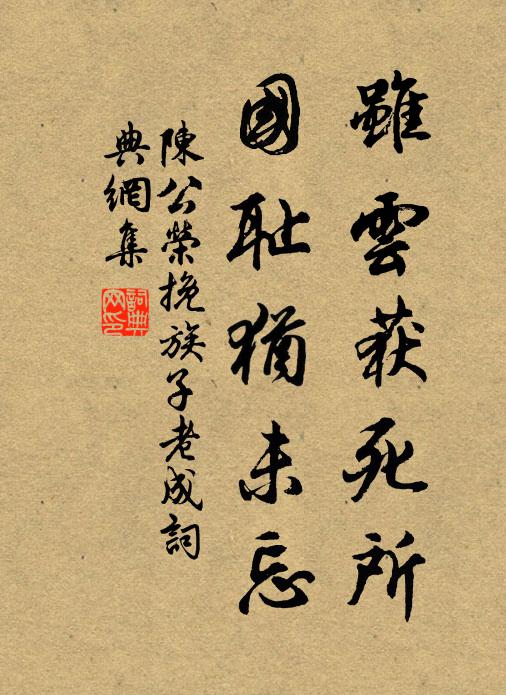 雖雲获死所
國耻猶未忘
陳公榮挽族子老成詞
典網集
詞典
网印